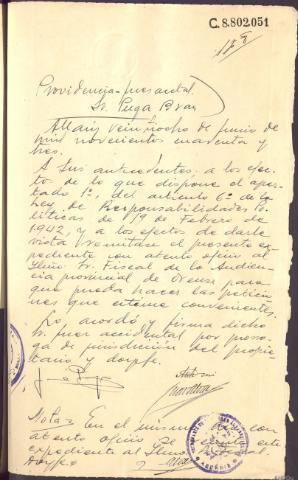 C.8.802.051
Providencia-Juez acctal.
Sr. Puga Bran
Allariz veintiocho de junio de
mil novecientos cuarenta y
tres.
A sus antecedentes, a los efec-
tos de lo que dispone el apar-
tado 1º, del artículo 6º de la
Ley de Responsabilidades Po-
líticas de 19 de Febrero de
1942, y a los efectos de darle
vista remitase el presente ex-
pediente con atento oficio al
Iltmo. Sr. Fiscal de la Audien-
cia provincial de Orense para
que pueda hacer las peticio-
nes que estime convenientes.
Lo acordó y firma dicho
Sr. Juez accidental por prorro-
ga de jurisdicción del propie-
tario y doy fe.
Ante mi
Nota= En el mismo con
atento oficio se este
expediente al Iltmo. Fiscal.
Doy fe